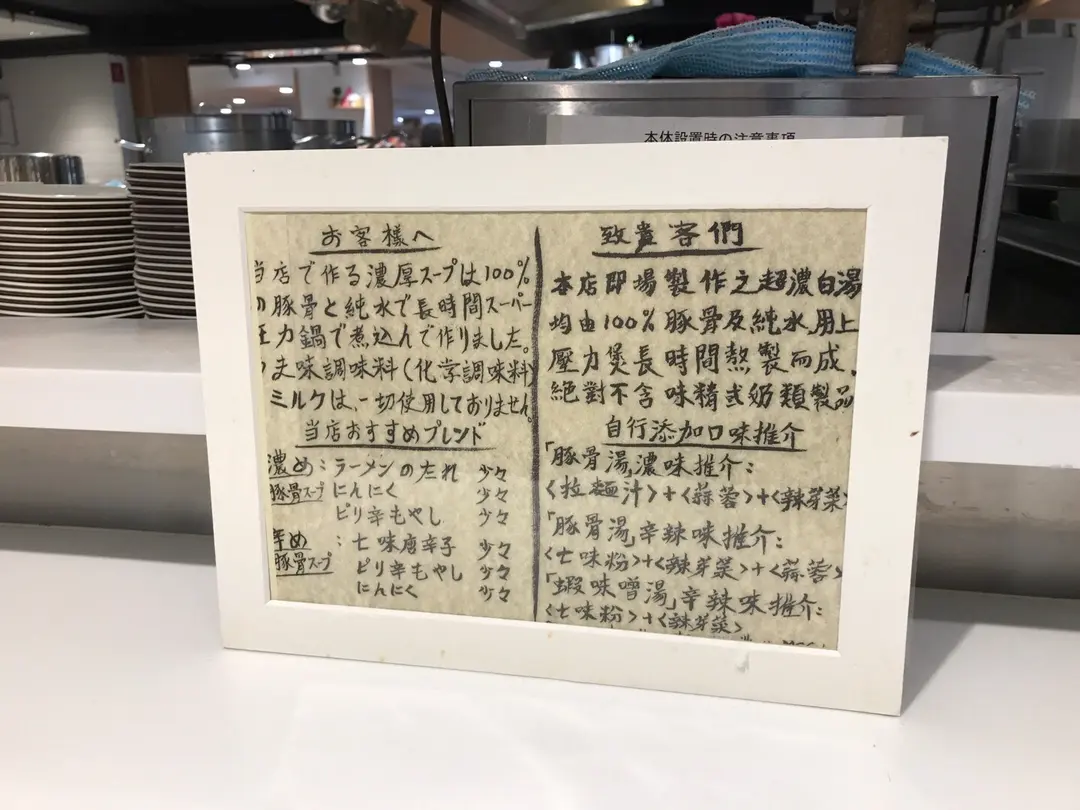 本体設置時の注意事項
お客様へ
当店で作る濃厚スープは100%
の豚骨と純水で長時間スーパー
圧力鍋で煮込んで作りました。
味調味料(化学調味料)
ミルクは、一切使用しておりません。
当店おすすめブレンド
濃め:ラーメンのたれ 少々
豚骨スープ にんにく 少々
ピリ辛もやし 少々
辛め:七味唐辛子 少々
豚骨スープ ピリ辛もやし 少々
にんにく 少々
致貴客們
本店即場製作之超濃白湯
均由100%豚骨及純水,用上
壓力煲長時間熬製而成,
絕對不含味精或奶類製品
自行添加口味推介
「豚骨湯」濃味推介:
<拉麵汁>+<蒜蓉>+<辣芽菜>
「豚骨湯」辛辣味推介:
<七味粉>+<辣芽菜>+<蒜蓉>
「蝦味噌湯」辛辣味推介:
<七味粉>+<辣芽菜>